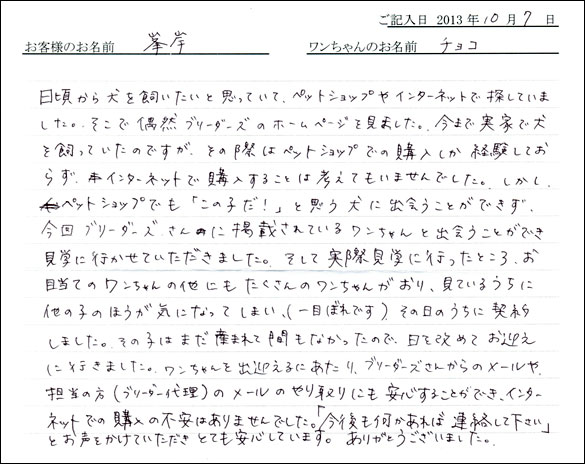 ご記入日 2013年10月7日
お客様のお名前 峯岸 ワンちゃんのお名前 チョコ
日頃から犬を飼いたいと思っていて、ペットショップやインターネットで探していま
した。そこで偶然ブリーダーズのホームページを見ました。今まで実家で犬
を飼っていたのですが、その際はペットショップでの購入しか経験してお
らず、インターネットで購入することは考えてもいませんでした。しかし、
ペットショップでも「この子だ!」と思う犬に出会うことができず、
今回ブリーダーズさんに掲載されているワンちゃんと出会うことができ
見学に行かせていただきました。そして実際見学に行ったところ、お
目当てのワンちゃんの他にもたくさんのワンちゃんがおり、見ているうちに
他の子のほうが気になってしまい、(一目ぼれです)その日のうちに契約
しました。その子はまだ産まれて間もなかったので、日を改めてお迎え
に行きました。ワンちゃんと出迎えるにあたり、ブリーダーズさんからのメールや、
担当の方(ブリーダー代理)のメールのやり取りにも安心することができ、インター
ネットでの購入の不安はありませんでした。「今後も何かあれば連絡して下さい」
とお声をかけていただきとても安心しています。ありがとうございました。